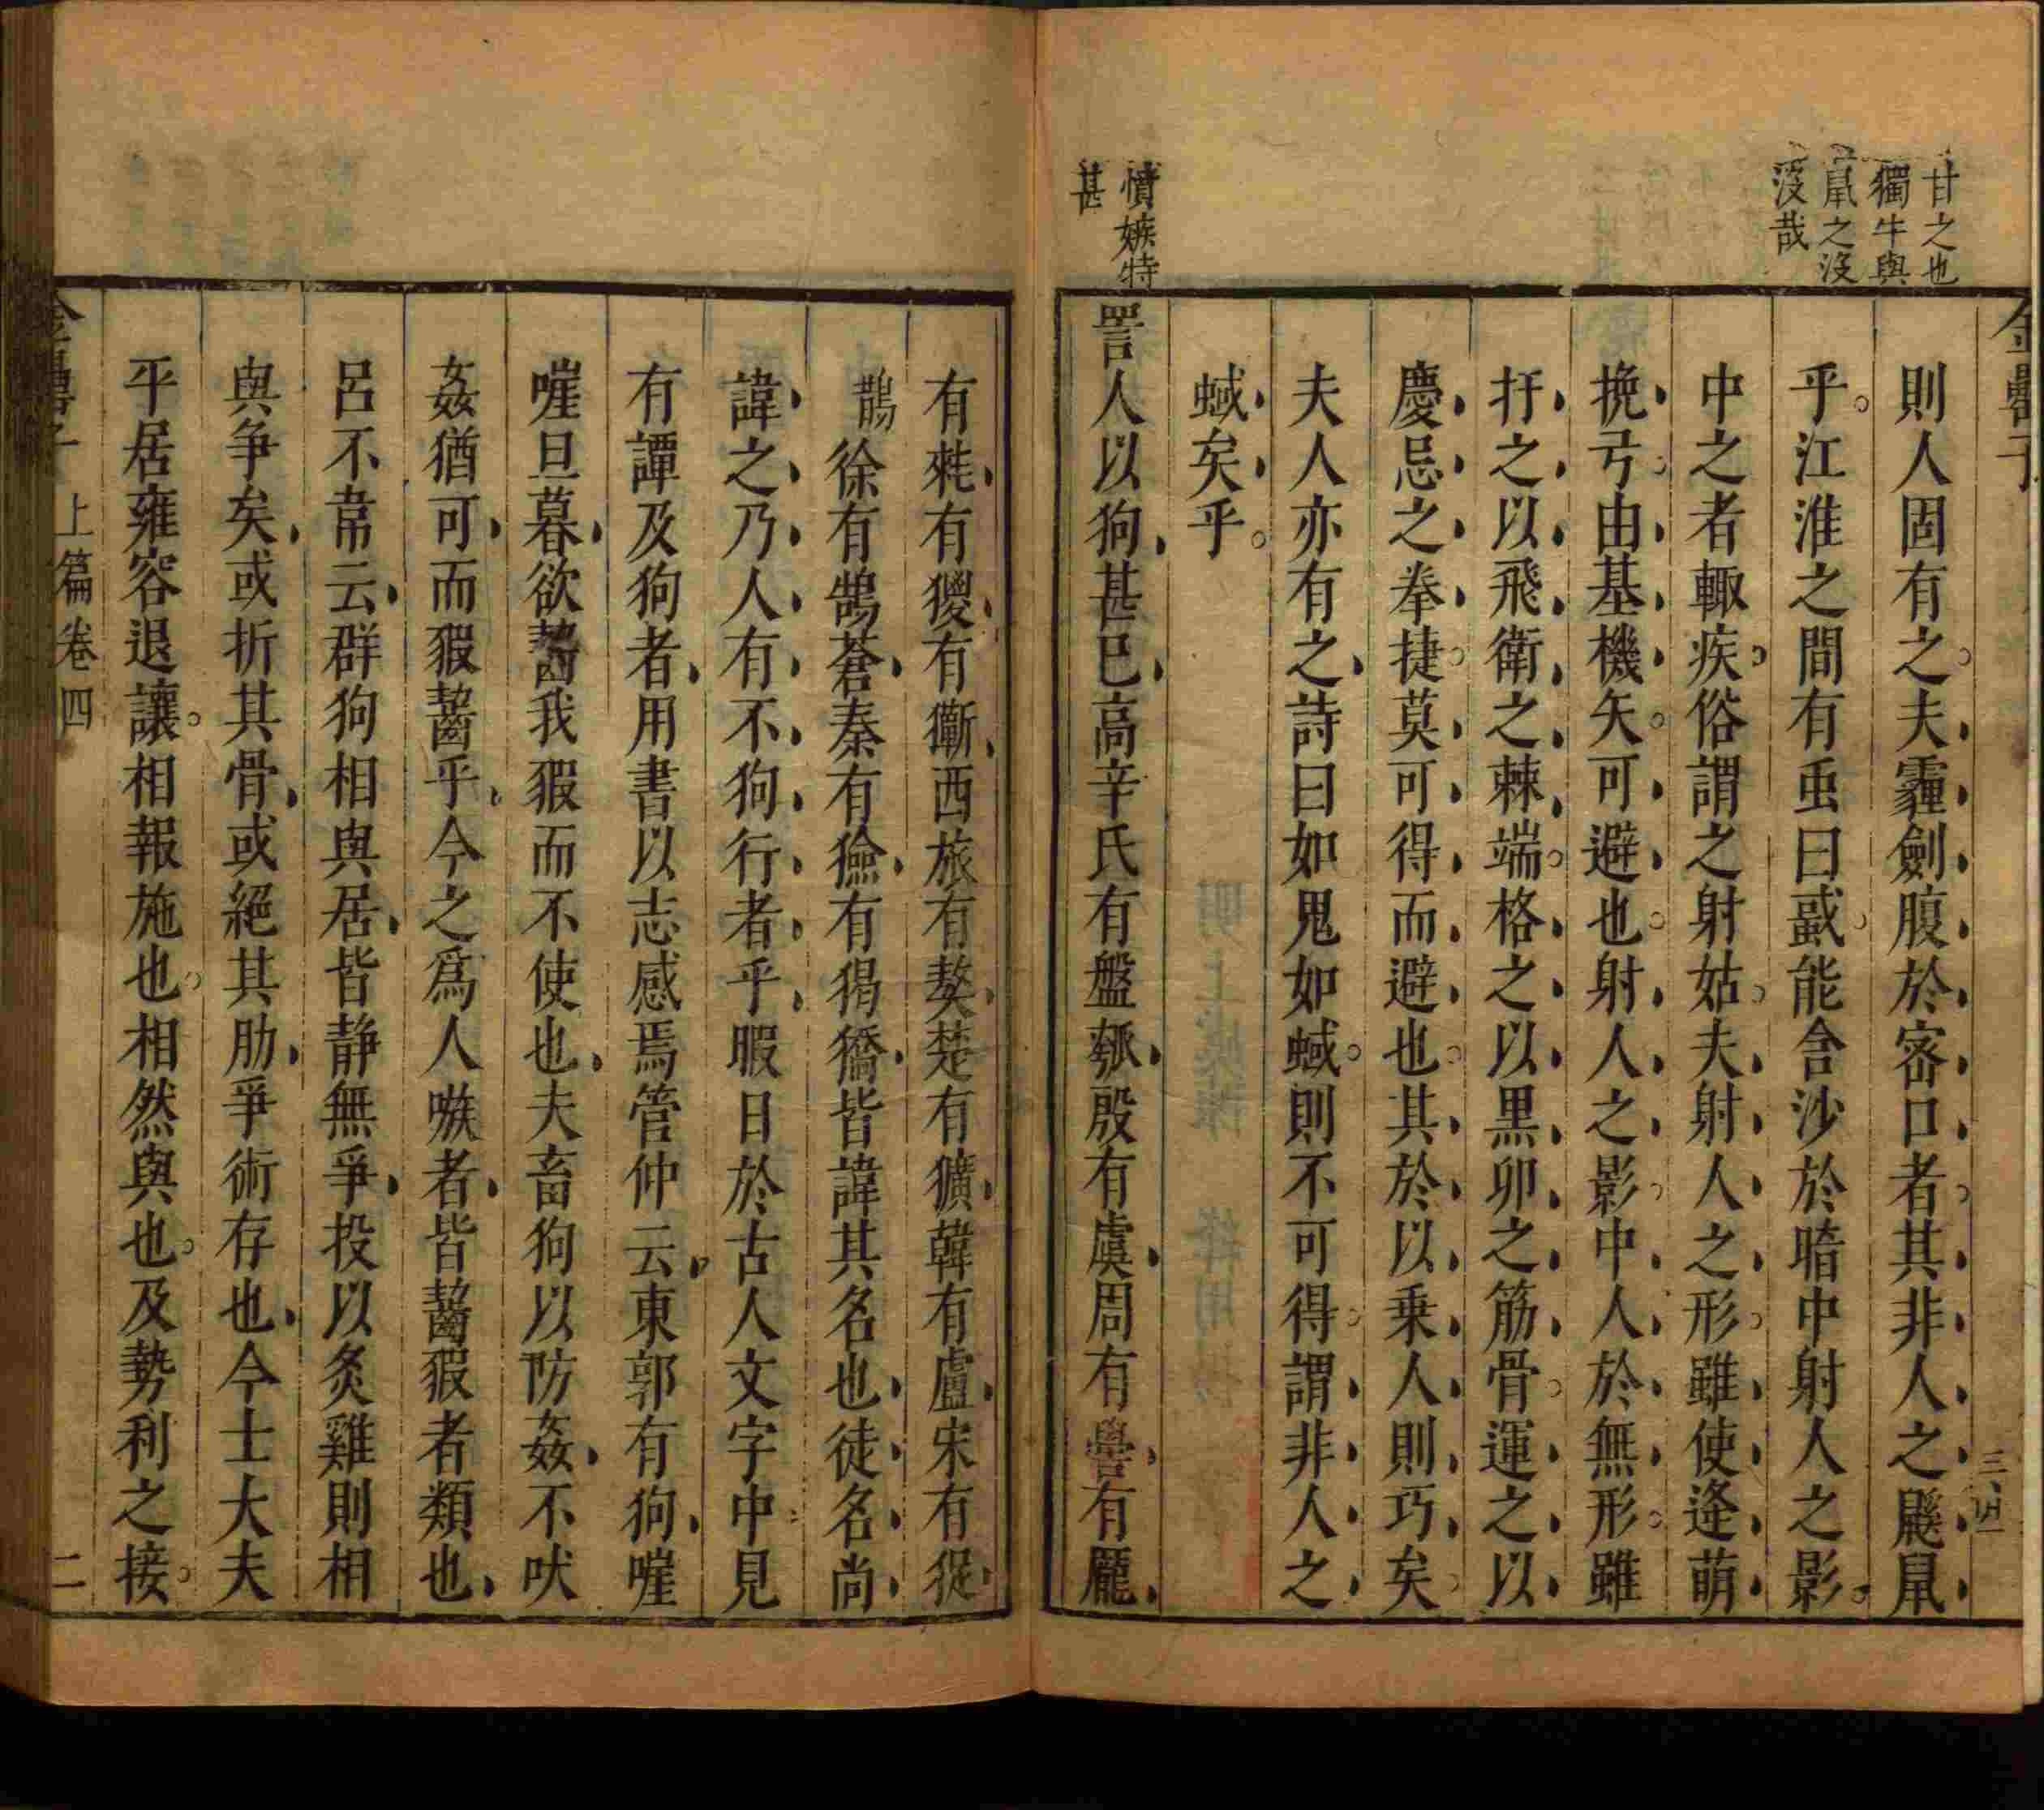 甘之也
獨牛與
鼠之没
没哉
金罍子
則人固有之夫薶劍腹於密口者其非人之鼷鼠
乎江淮之間有虫曰蜮能含沙於暗中射人之影
中之者輙疾俗謂之射姑夫射人之形雖使逄萌
挽弓由基機矢可避也射人之影中人於無形雖
扞之以飛衛之棘端格之以黒卯之筋骨運之以
慶忌之拳捷莫可得而避也其於以乗人則巧矣
夫人亦有之詩曰如鬼如蜮則不可得謂非人之
蜮矣乎
憤嫉特
甚
詈人以狗甚巳高辛氏有盤瓠殷有虞周有嚳有厖
有𤟛有獿有獑西旅有獒楚有獚韓有盧宋有猣
鵲徐有鵠蒼秦有獫有猲獢皆諱其名也徒名尚
諱之乃人有不狗行者乎暇日於古人文字中見
有譚及狗者用書以志感焉管仲云東郭有狗嘊
嘊旦暮欲齧我猳而不使也夫畜狗以防姦不吠
姦猶可而猳齧乎今之爲人嗾者皆齧猳者類也
呂不韋云群狗相與居皆静無爭投以炙雞則相
與争矣或折其骨或絕其肋爭術存也今士大夫
平居雍容退讓相報施也相然與也及勢利之接
上篇卷四
二